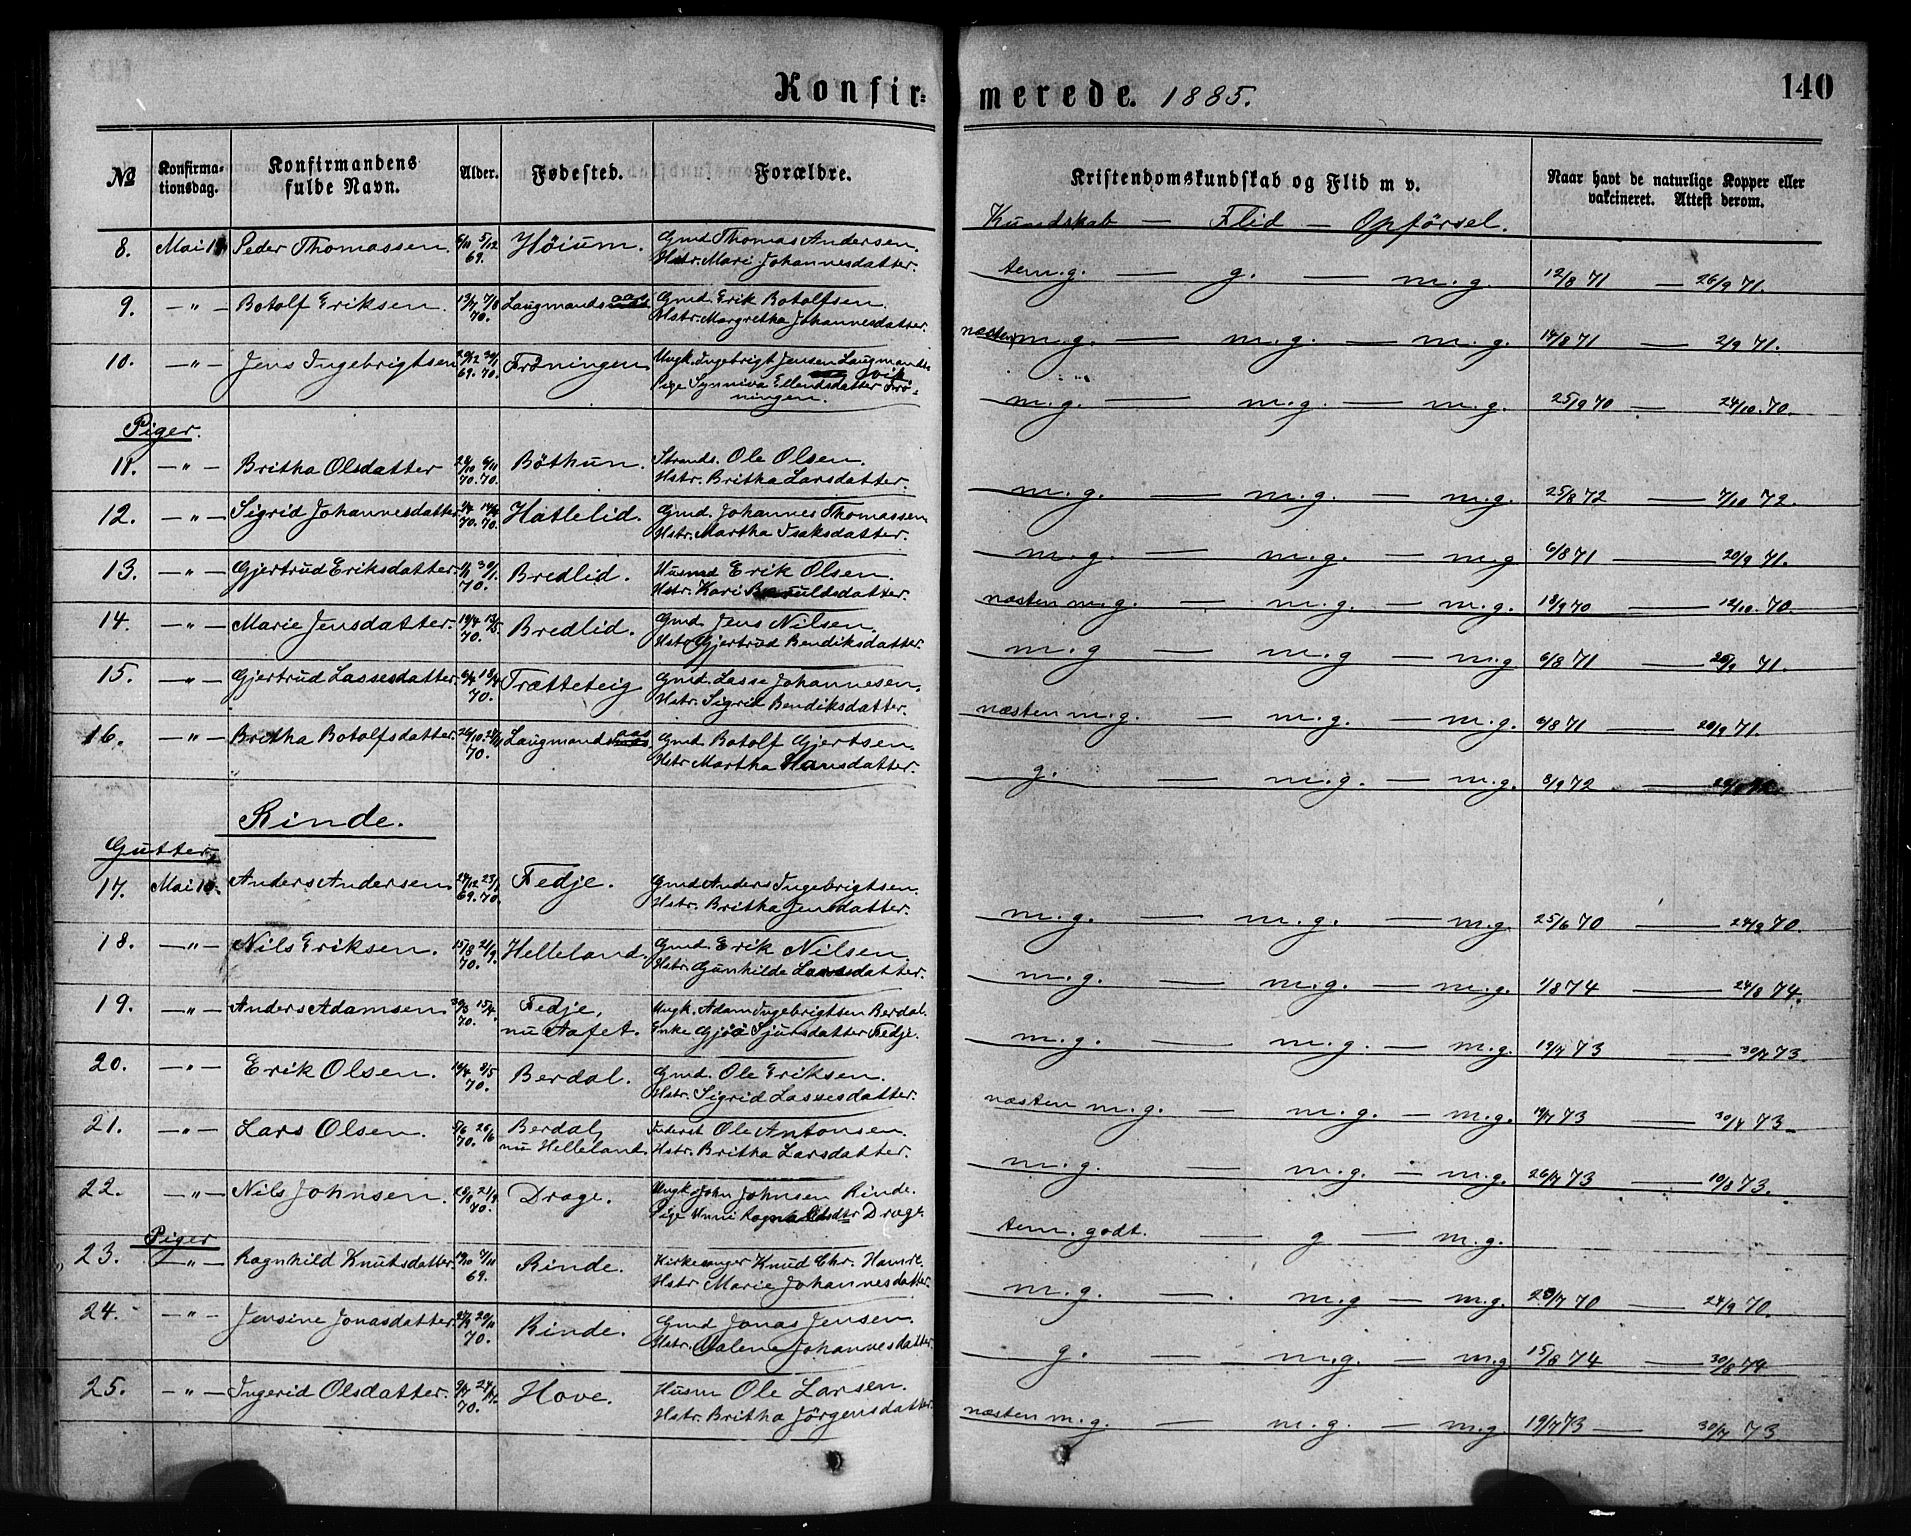 Konfirmerede. 1885. 140
№ Konfirmationsdag. Konfirmandens fulde Navn. Alder. Fødested. Forældre. Kristendomskundskab og Flid m v. Naar havt de naturlige Kopper eller vakcineret. Attest derom.
Kundskab — Flid — Opförsel.
8. Mai Peder Thomassen 5/12 69. Höium. Gmd Thomas Andersen.
Hstr. Mari Johannesdatter.
tem.g. — g. — m.g. 12/8 71 — 26/9 71.
9. —"— Botolf Eriksen. 13/7 7/8 70. Laugmands Gmd. Erik Botolfsen.
Hstr. Margretha Johannesdatter.
næsten m.g. — m.g. — m.g. 14/8 71 — 2/9 71.
10. —"— Jens Ingebrigtsen 69. 70. Fröningen Ungk. Ingebrigt Jensen Laugmands
Pige Synniva Ellendsdatter Frö-
ningen.
m.g. — m.g. — m.g. 25/9 70 — 24/10 70.
Piger.
11. —"— Britha Olsdatter 6/11 70. 70. Böthun. Strands. Ole Olsen.
Hstr. Britha Larsdatter.
m.g. — m.g. — m.g. 25/8 72 — 7/10 72.
12. —"— Sigrid Johannesdatter 70. 70. Hatlelid. Gmd. Johannes Thomassen
Hstr. Martha Isaksdatter.
m.g. — m.g. — m.g 6/8 71 — 20/9 71.
13. —"— Gjertrud Eriksdatter. 70. Bredlid. Husmd Erik Olsen.
Hstr. Kari
næsten m.g. — m.g. — m.g. 18/9 70 — 12/10 70.
14. —"— Marie Jensdatter. 19/4 70. Bredlid. Gmd Jens Nilsen.
Hstr. Gjertrud Bendiksdatter.
m.g — m.g — m.g 6/8 71 71.
15. —"— Gjertrud Lassesdatter. 70. Trætteteig Gmd. Lasse Johannesen.
Hstr. Sigrid Bendiksdatter.
næsten m.g. — m.g. — m.g. 6/8 71 — 20/9 71.
16. —"— Britha Botolfsdatter. 70. Laugmands Gmd Botolf Gjertsen.
Hstr Martha Hansdatter.
g. — m.g. — m.g. 8/9 72
Rinde.
Gutter.
17. Mai Anders Andersen 27/12 23/1 69. 70. Fedje. Gmd Anders Ingebrigtsen.
Hstr. Britha Jensdatter.
m.g. — m.g. — m.g. 25/6 70 — 24/9 70.
18. —"— Nils Eriksen. 15/8 21/9 70. Helleland. Gmd Erik Nilsen
Hstr. Gunhilde Larsdatter.
m.g. — m.g. — m.g. 1/8 74 — 24/8 74.
19. —"— Anders Adamsen 30/3 15/4 70. Fedje, Ungk. Adam Ingebrigtsen Berdal.
nu Aafet. Enke Gjöa Sjursdatter Fedje.
m.g. — m.g. — m.g. 19/7 73 — 30/7 73.
20. —"— Erik Olsen. 70. Berdal. Gmd. Ole Eriksen.
Hstr. Sigrid Lassesdatter.
næsten m.g. — m.g. — m.g. 73 — 30/7 73
21. —"— Lars Olsen. 26/6 70. Berdal, Ole Antonsen.
nu Helleland. Hstr. Britha Larsdatter.
m.g. — m.g. — m.g. 26/7 73 — 10/8 73.
22. —"— Nils Johnsen. 21/9 70. Drage. Ungk John Johnsen Rinde.
Pige Unni Drage
tem. godt. — g — m.g.
Piger
23. —"— Ragnhild Knutsdatter. 7/11 69. Rinde. Kirkesanger Knud Chr. Hamre.
Hstr Marie Johannesdatter.
m.g. — m.g — m.g. 70 — 24/9 70.
24. —"— Jensine Jonasdatter 70. Rinde. Gmd Jonas Jensen.
Hstr. Malene Johannesdatter
g. — m.g. — m.g 15/8 74 — 30/8 74
25. —"— Ingerid Olsdatter. 9/7 24/7 70. Hove. Husm Ole Larsen.
Hstr. Britha Jörgensdatter.
næsten m.g. — m.g. — m.g. 19/7 73 — 30/7 73.